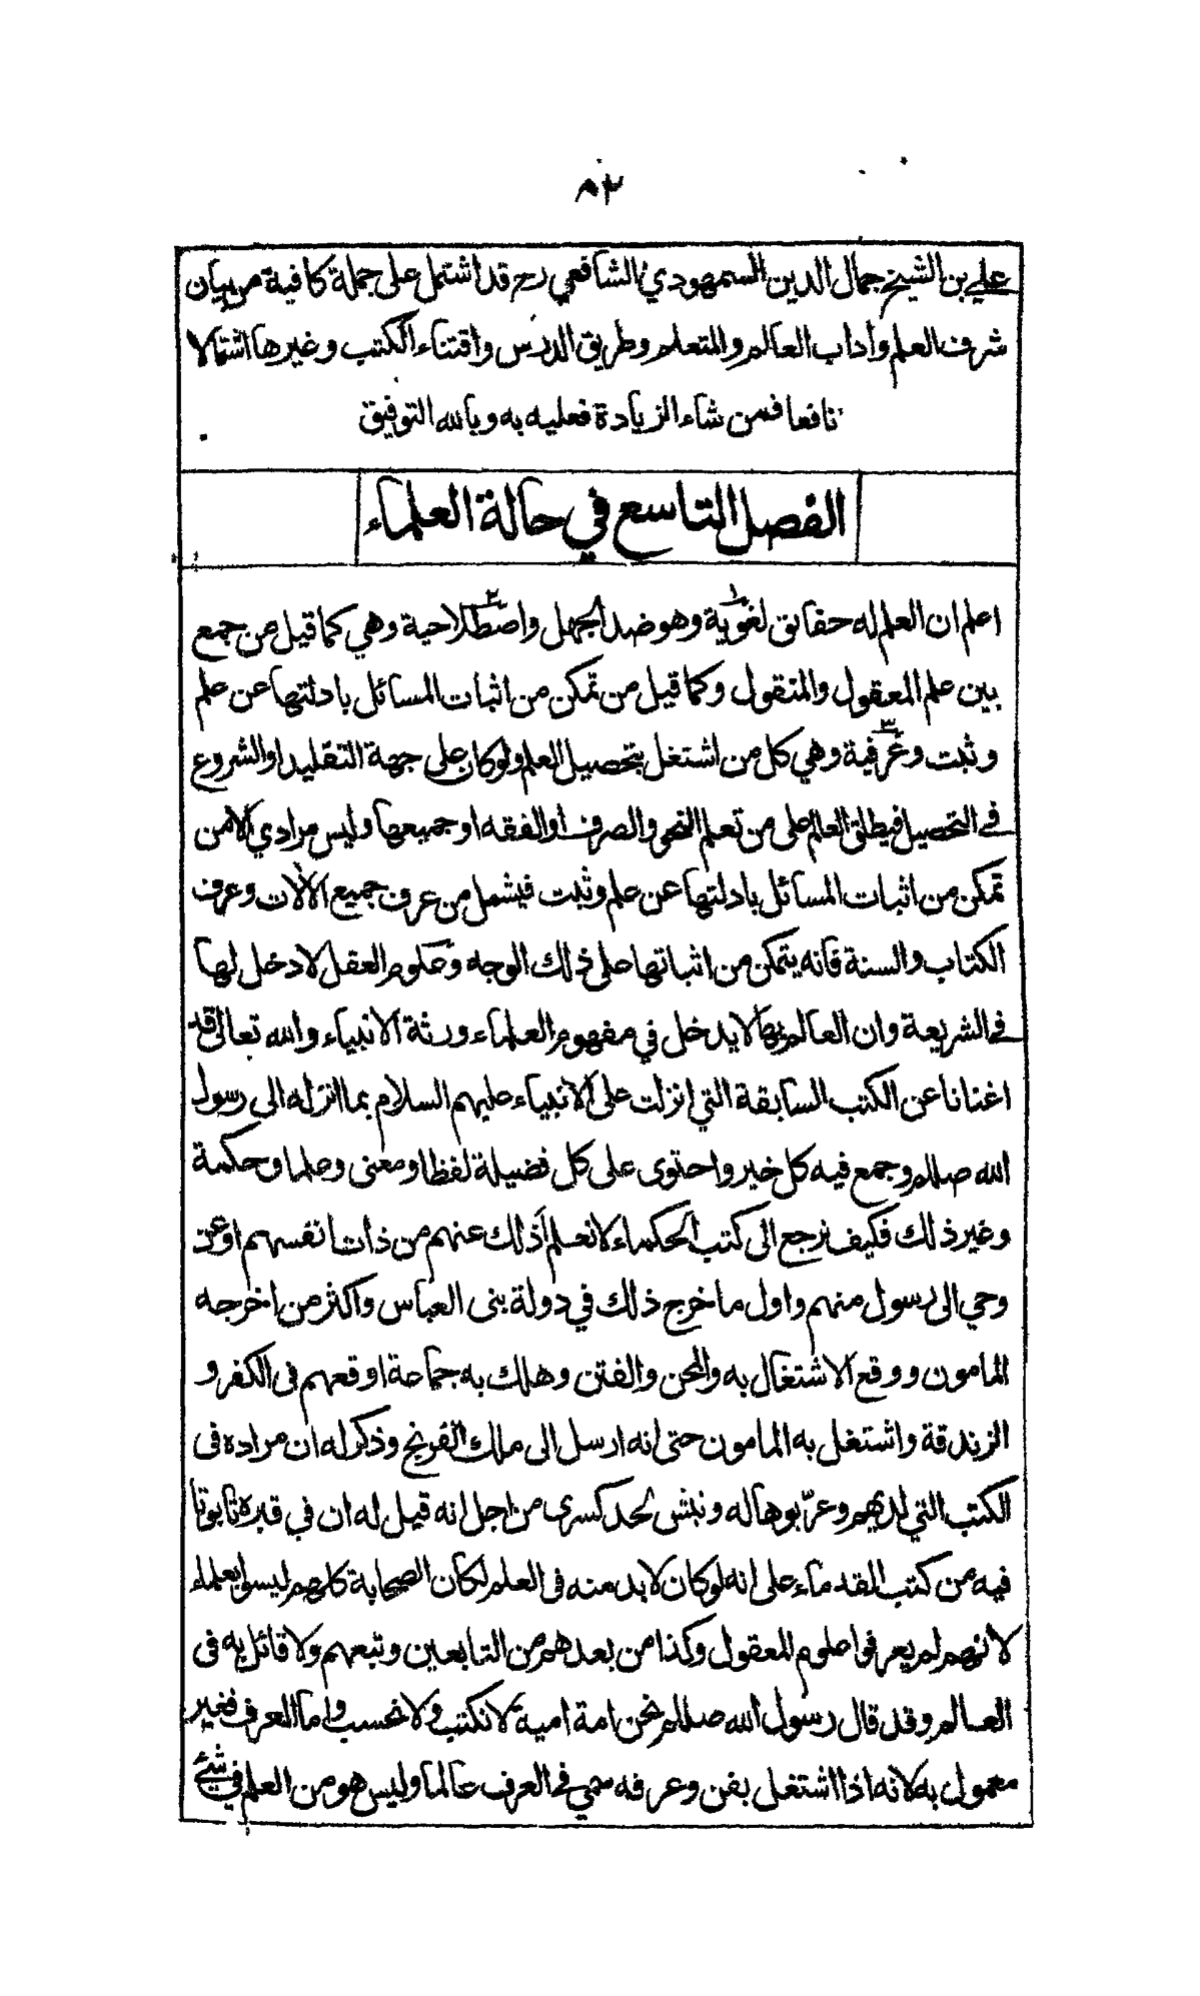 ٨٢
علي بن الشيخ جمال الدين السمهودي الشافعي رح قد اشتمل على جملة كافية من بيان
شرف العلم وآداب العالم والمتعلم وطريق الدرس واقتناء الكتب وغيرها اشتمالا
نافعا فمن شاء الزيادة فعليه به وبالله التوفيق
الفصل التاسع في حالة العلماء
اعلم ان العلم له حقائق لغوية وهو ضد الجهل واصطلاحية وهي كما قيل من جمع
بين علم المعقول والمنقول وكما قيل من تمكن من اثبات المسائل بادلتها عن علم
وثبت وعرفية وهي كل من اشتغل بتحصيل العلم ولو كان على جهة التقليد او الشروع
في التحصيل فيطلق العالم على من تعلم النحو والصرف او الفقه او جميعها وليس مرادي الا من
تمكن من اثبات المسائل بادلتها عن علم وثبت فيشمل من عرف جميع الآلات وعرف
الكتاب والسنة فانه يتمكن من اثباتها على ذلك الوجه وعلوم العقل لا دخل لها
في الشريعة وان العالم بها لا يدخل في مفهوم العلماء ورثة الانبياء والله تعالى قد
اغنانا عن الكتب السابقة التي انزلت على الانبياء عليهم السلام بما انزله الى رسول
الله صللم وجمع فيه كل خير واحتوى على كل فضيلة لفظا ومعنى وعلما وحكمة
وغير ذلك فكيف نرجع الى كتب الحكماء لا نعلم أذلك عنهم من ذات انفسهم او عن
وحي الى رسول منهم واول ما خرج ذلك في دولة بنى العباس واكثر من اخرجه
المامون ووقع الاشتغال به والمحن والفتن وهلك به جماعة اوقعهم فى الكفر و
الزندقة واشتغل به المامون حتى انه ارسل الى ملك الفرنج وذكر له ان مراده فى
الكتب التي لديهم وعرّبوها له ونبش لحد كسرى من اجل انه قيل له ان في قبره تابوتا
فيه من كتب القدماء على انه لو كان لا بد منه فى العلم لكان الصحابة كلهم ليسوا بعلماء
لانهم لم يعرفوا علوم المعقول وكذا من بعدهم من التابعين وتبعهم ولا قائل به فى
العالم وقد قال رسول الله صللم نحن امة امية لا نكتب ولا نحسب واما العرف فغير
معمول به لانه اذا اشتغل بفن وعرفه سمي في العرف عالما وليس هو من العلم في شئ